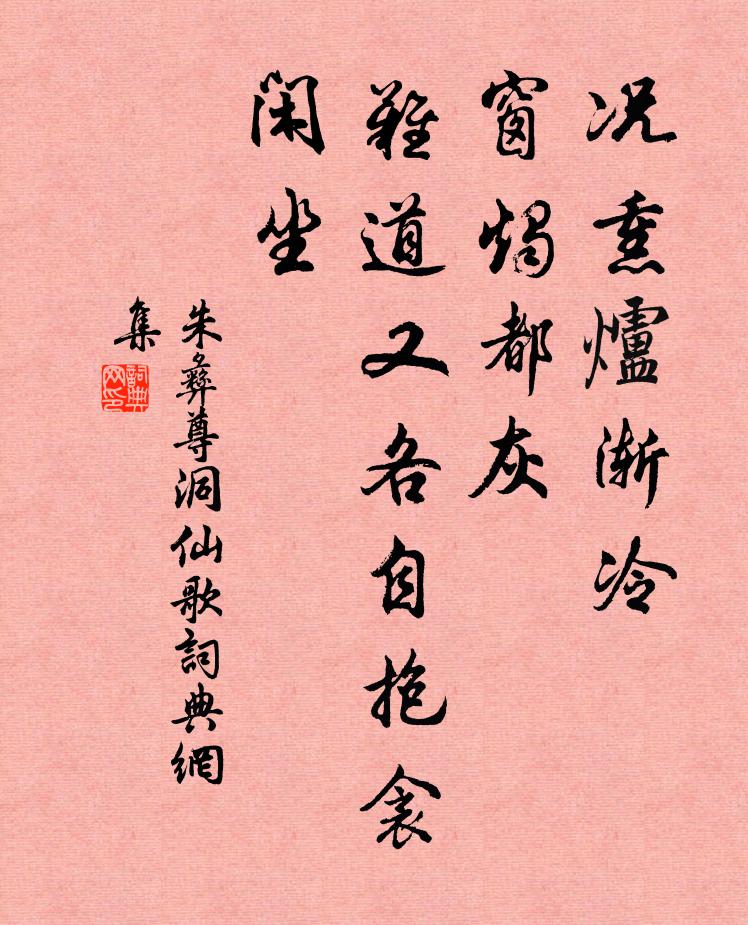 况熏爐漸冷
窗燭都灰
難道又各自抱衾
閑坐
朱彝尊洞仙歌詞典網
集
詞典
网印